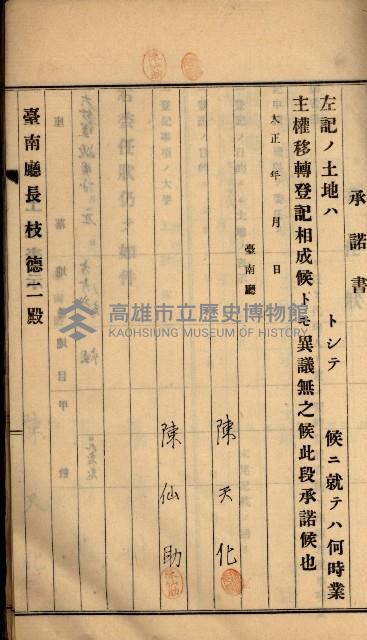 承諾書
左記ノ土地ハ　トシテ　候ニ就テハ何時業
主權移轉登記相成候トモ異議無之候此段承諾候也
大正　年　月　日
臺南廳
陳天化
陳仙助
臺南廳長枝德二殿
高雄市立歷史博物館
KAOHSIUNG MUSEUM OF HISTORY